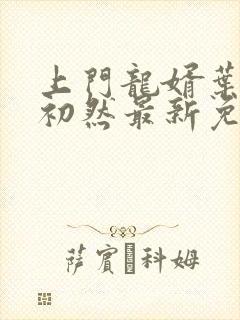 上門龍婿葉
初然最新免
萨賓 科姆